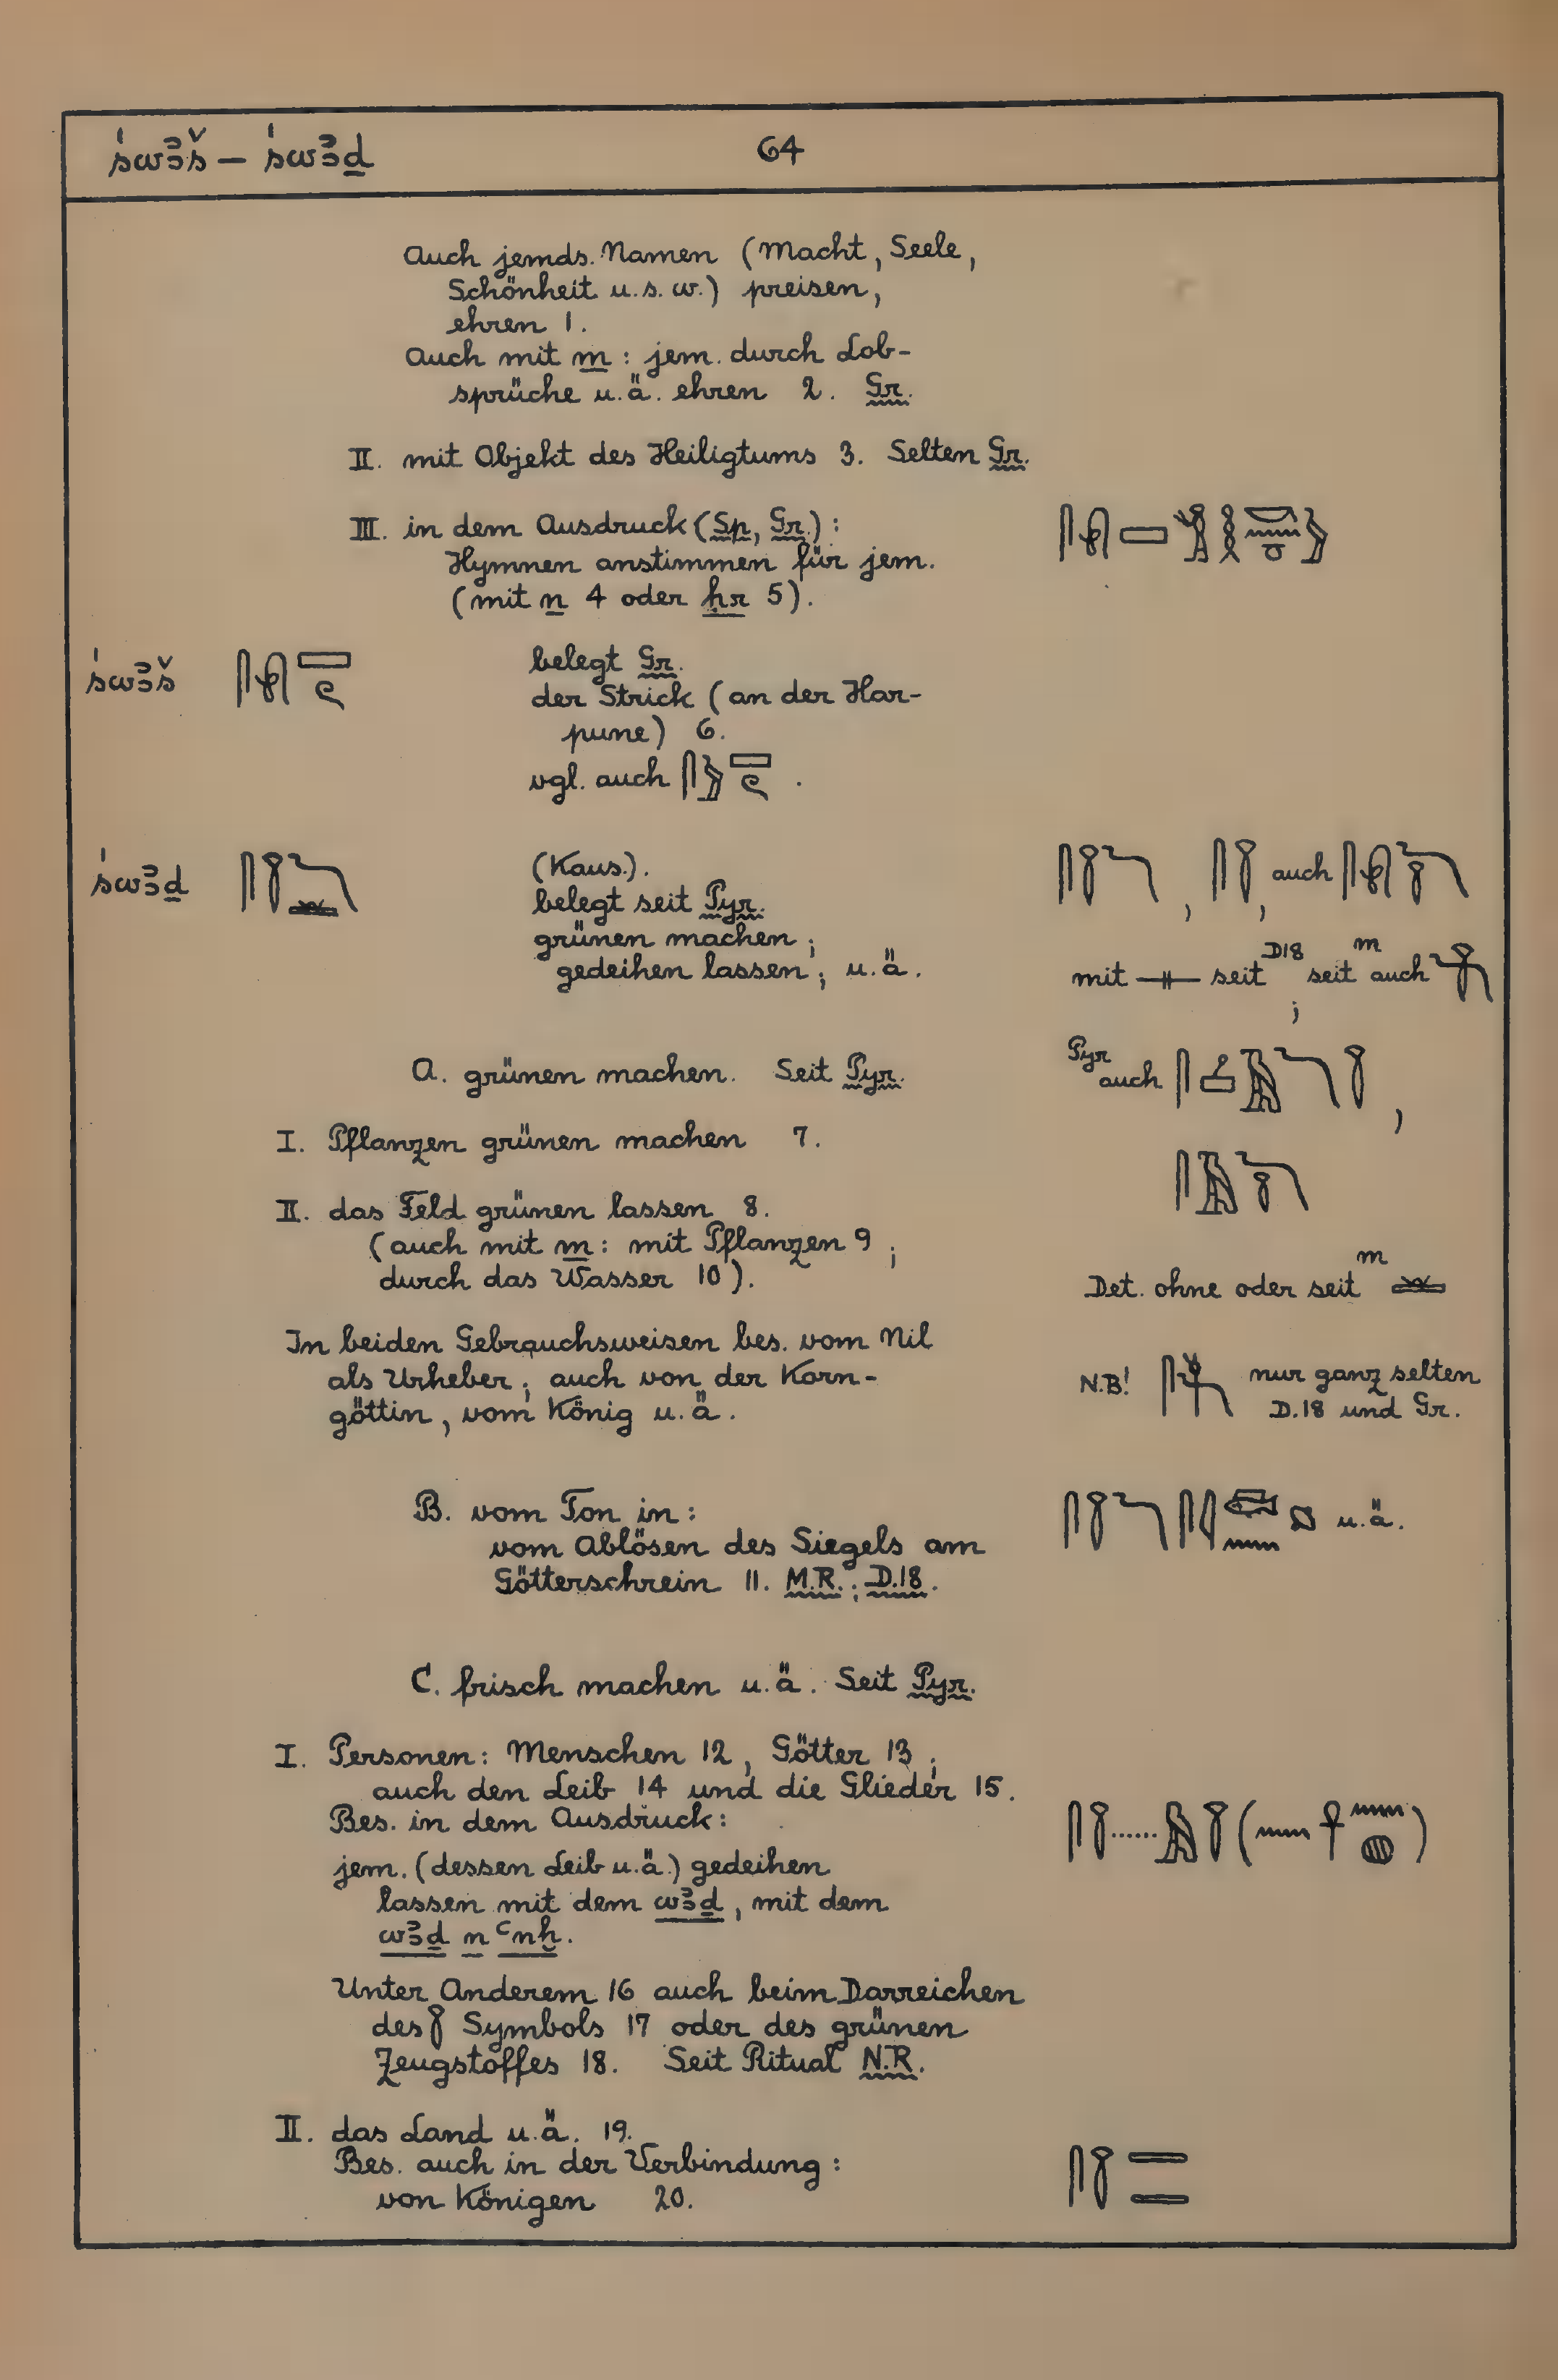 śwꜣš – śwꜣḏ
64
Auch jemds. Namen (Macht, Seele,
Schönheit u.s.w.) preisen,
ehren 1.
Auch mit m: jem. durch Lob-
sprüche u.ä. ehren 2. Gr.
II. mit Objekt des Heiligtums 3. Selten Gr.
III. in dem Ausdruck (Sp, Gr.):
Hymnen anstimmen für jem.
(mit n 4 oder ḥr 5).
śwꜣš
belegt Gr.
der Strick (an der Har-
pune) 6.
vgl. auch
śwꜣḏ
(Kaus.).
belegt seit Pyr.
grünen machen;
gedeihen lassen; u.ä.
, , auch
mit seit D18; seit m auch
A. grünen machen. Seit Pyr.
Pyr auch ,
I. Pflanzen grünen machen 7.
II. das Feld grünen lassen 8.
(auch mit m: mit Pflanzen 9;
durch das Wasser 10).
Det. ohne oder seit m
In beiden Gebrauchsweisen bes. vom Nil
als Urheber; auch von der Korn-
göttin, vom König u.ä.
N.B! nur ganz selten
D.18 und Gr.
B. vom Ton in:
vom Ablösen des Siegels am
Götterschrein 11. M.R.; D.18.
u.ä.
C. frisch machen u.ä. Seit Pyr.
I. Personen: Menschen 12, Götter 13;
auch den Leib 14 und die Glieder 15.
Bes. in dem Ausdruck:
jem. (dessen Leib u.ä.) gedeihen
lassen mit dem wꜣḏ, mit dem
wꜣḏ n ꜥnḫ.
Unter Anderem 16 auch beim Darreichen
des Symbols 17 oder des grünen
Zeugstoffes 18. Seit Ritual N.R.
II. das Land u.ä. 19.
Bes. auch in der Verbindung:
von Königen 20.